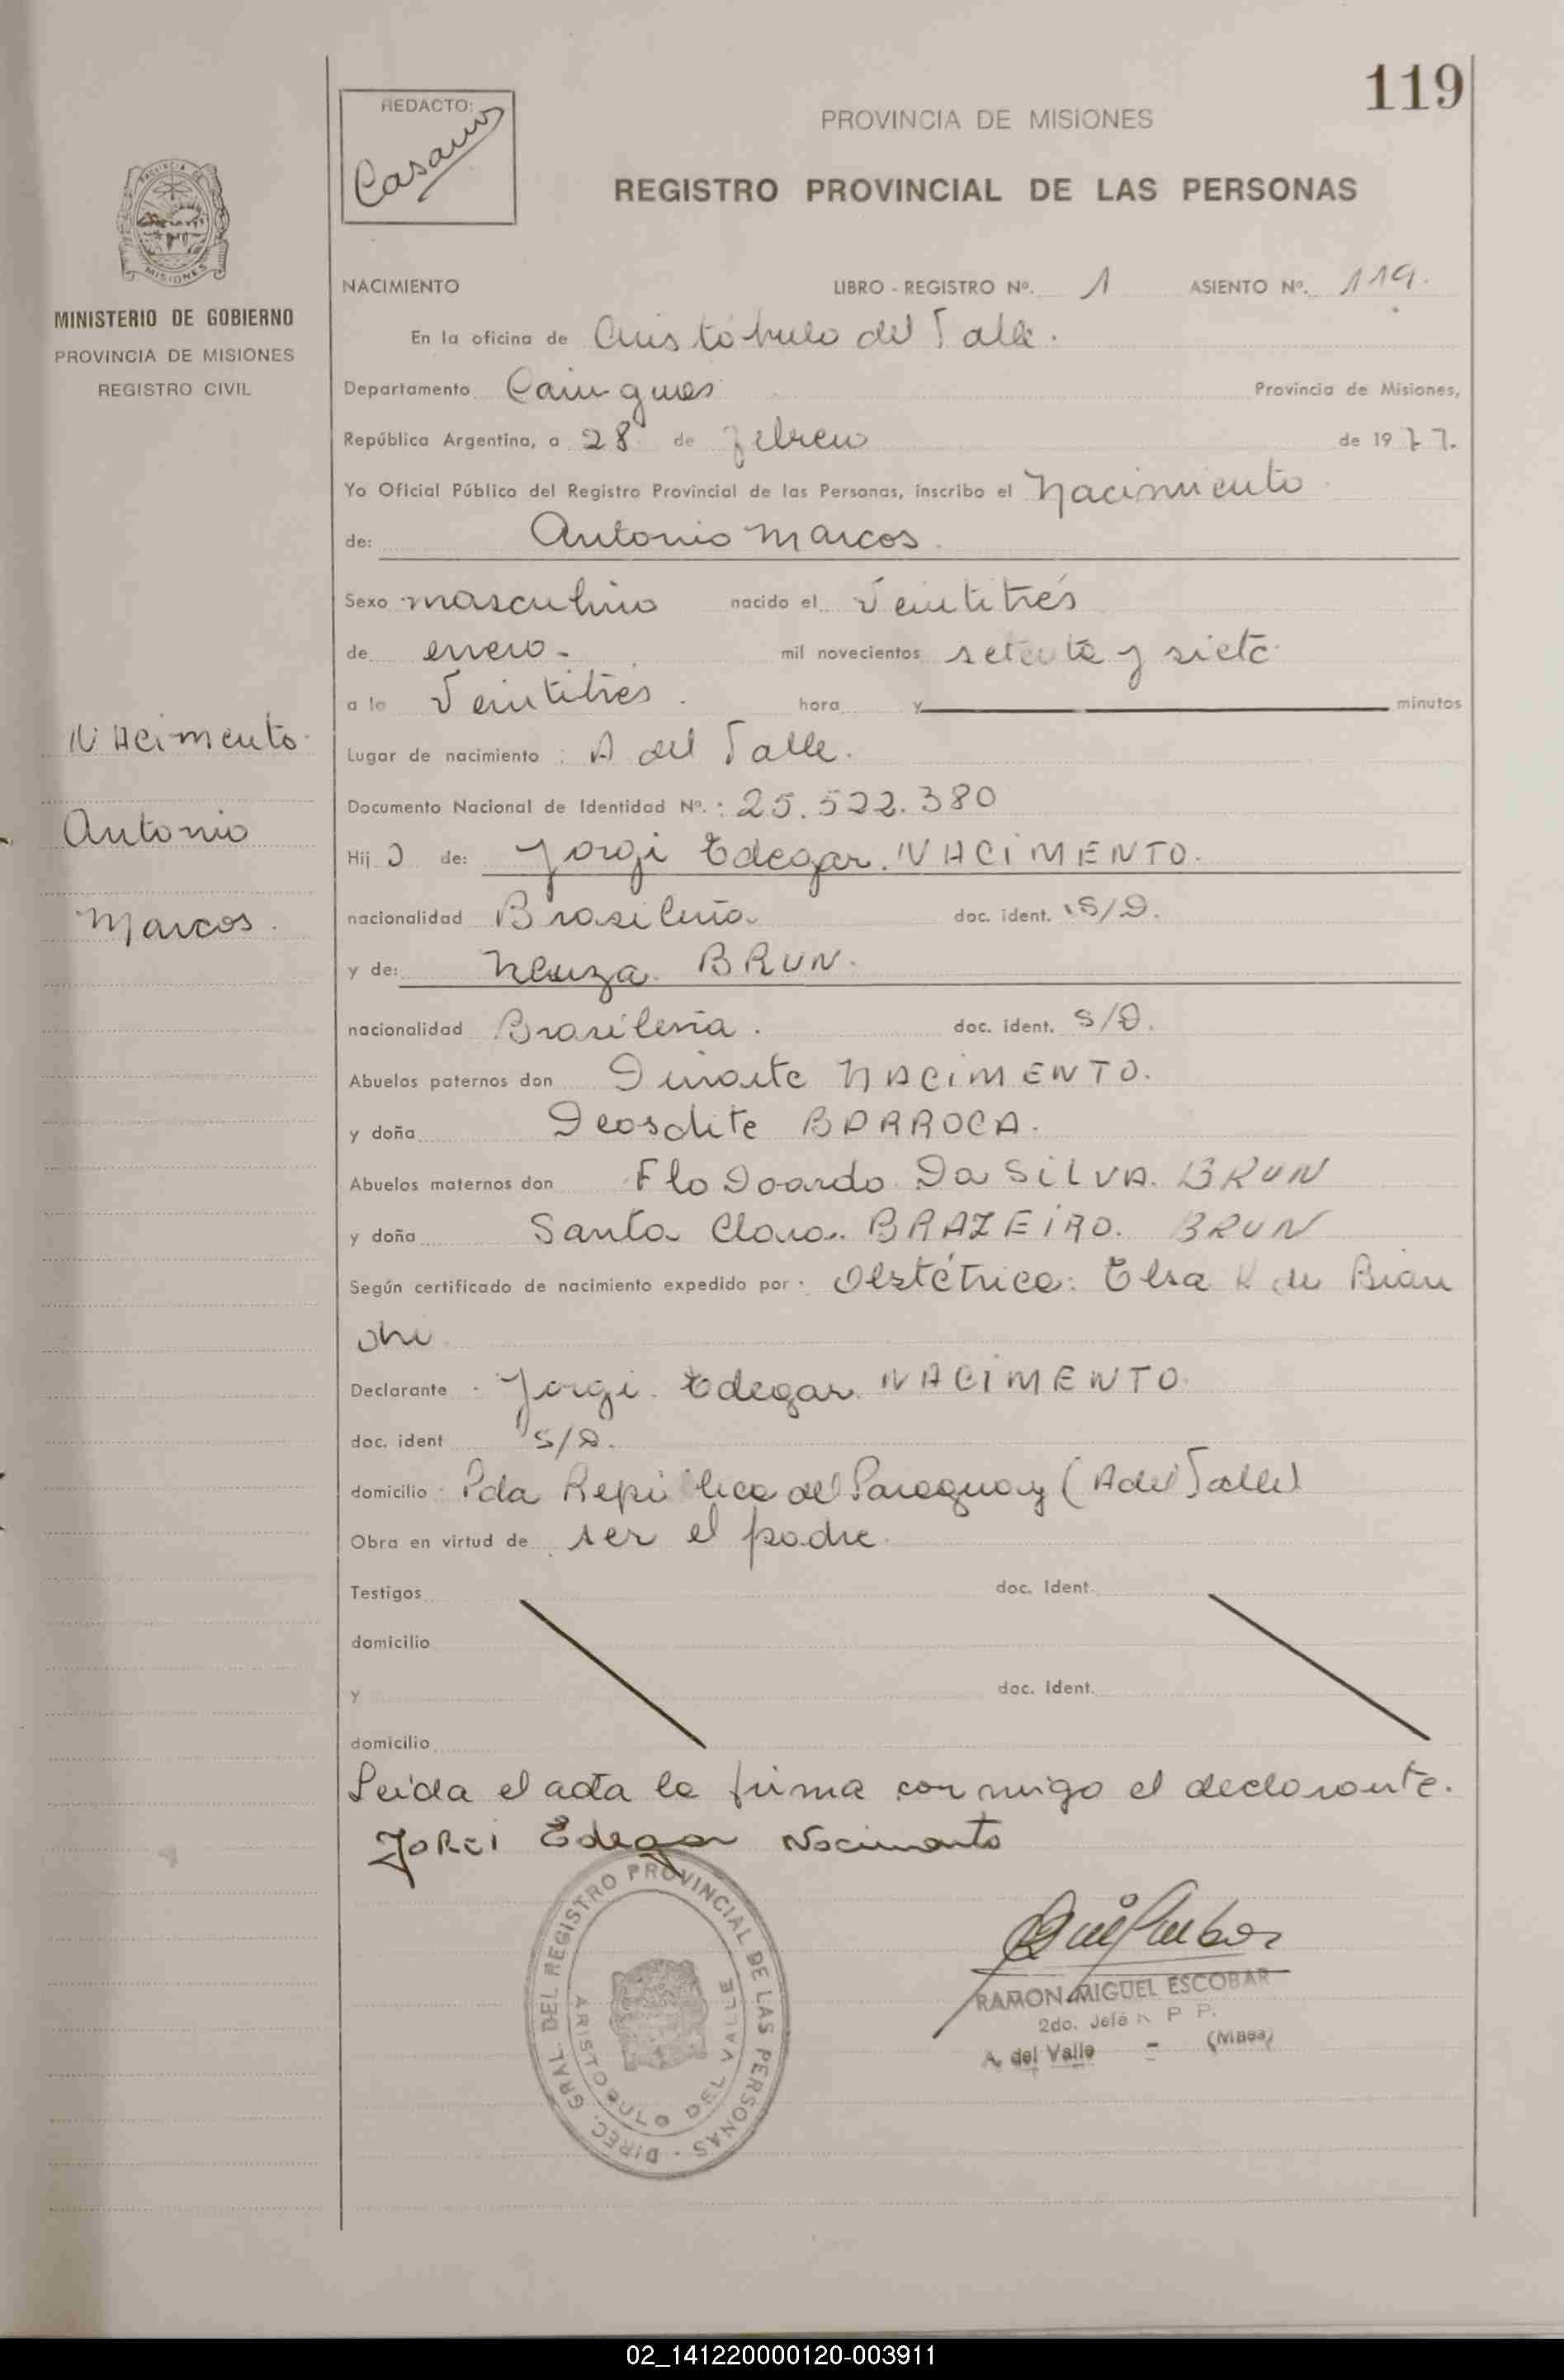 119
REDACTO:
Casano
PROVINCIA DE MISIONES
REGISTRO PROVINCIAL DE LAS PERSONAS
PROVINCIA DE
MISIONES
MINISTERIO DE GOBIERNO
PROVINCIA DE MISIONES
REGISTRO CIVIL
NACIMIENTO LIBRO - REGISTRO Nº. 1 ASIENTO Nº. 119.
En la oficina de Aristóbulo del Valle.
Departamento Cainguas Provincia de Misiones,
República Argentina, a 28 de febrero de 1977.
Yo Oficial Público del Registro Provincial de las Personas, inscribo el Nacimiento
de: Antonio Marcos.
Sexo masculino nacido el Veintitrés
de enero. mil novecientos setenta y siete
a la Veintitrés. hora y minutos
Lugar de nacimiento : A del Valle.
Documento Nacional de Identidad Nº. : 25.522.380
Hij o de: Jorgi Edegar NACIMENTO.
nacionalidad Brasileña doc. ident. S/D.
y de: Neuza BRUN.
nacionalidad Brasileña. doc. ident. S/D.
Abuelos paternos don Dinarte NACIMENTO.
y doña Deosdite BARROCA.
Abuelos maternos don Flo Doardo Da SILVA. BRUN
y doña Santa Clara BRAZEIRO. BRUN
Según certificado de nacimiento expedido por : Obstétrica: Elsa K de Bian
chi
Declarante Jorgi Edegar NACIMENTO
doc. ident S/D.
domicilio Pda República del Paraguay (A del Valle)
Obra en virtud de ser el padre.
Testigos doc. ident.
domicilio
y doc. ident.
domicilio
Leida el acta la firma conmigo el declarante.
JoRgi Edegar Nacimento
NAcimento
Antonio
Marcos.
DIREC. GRAL. DEL REGISTRO PROVINCIAL DE LAS PERSONAS -
ARISTOBULO DEL VALLE
RAMON MIGUEL ESCOBAR
2do. Jefe R P P.
A. del Valle - (Mnes)
02_141220000120-003911